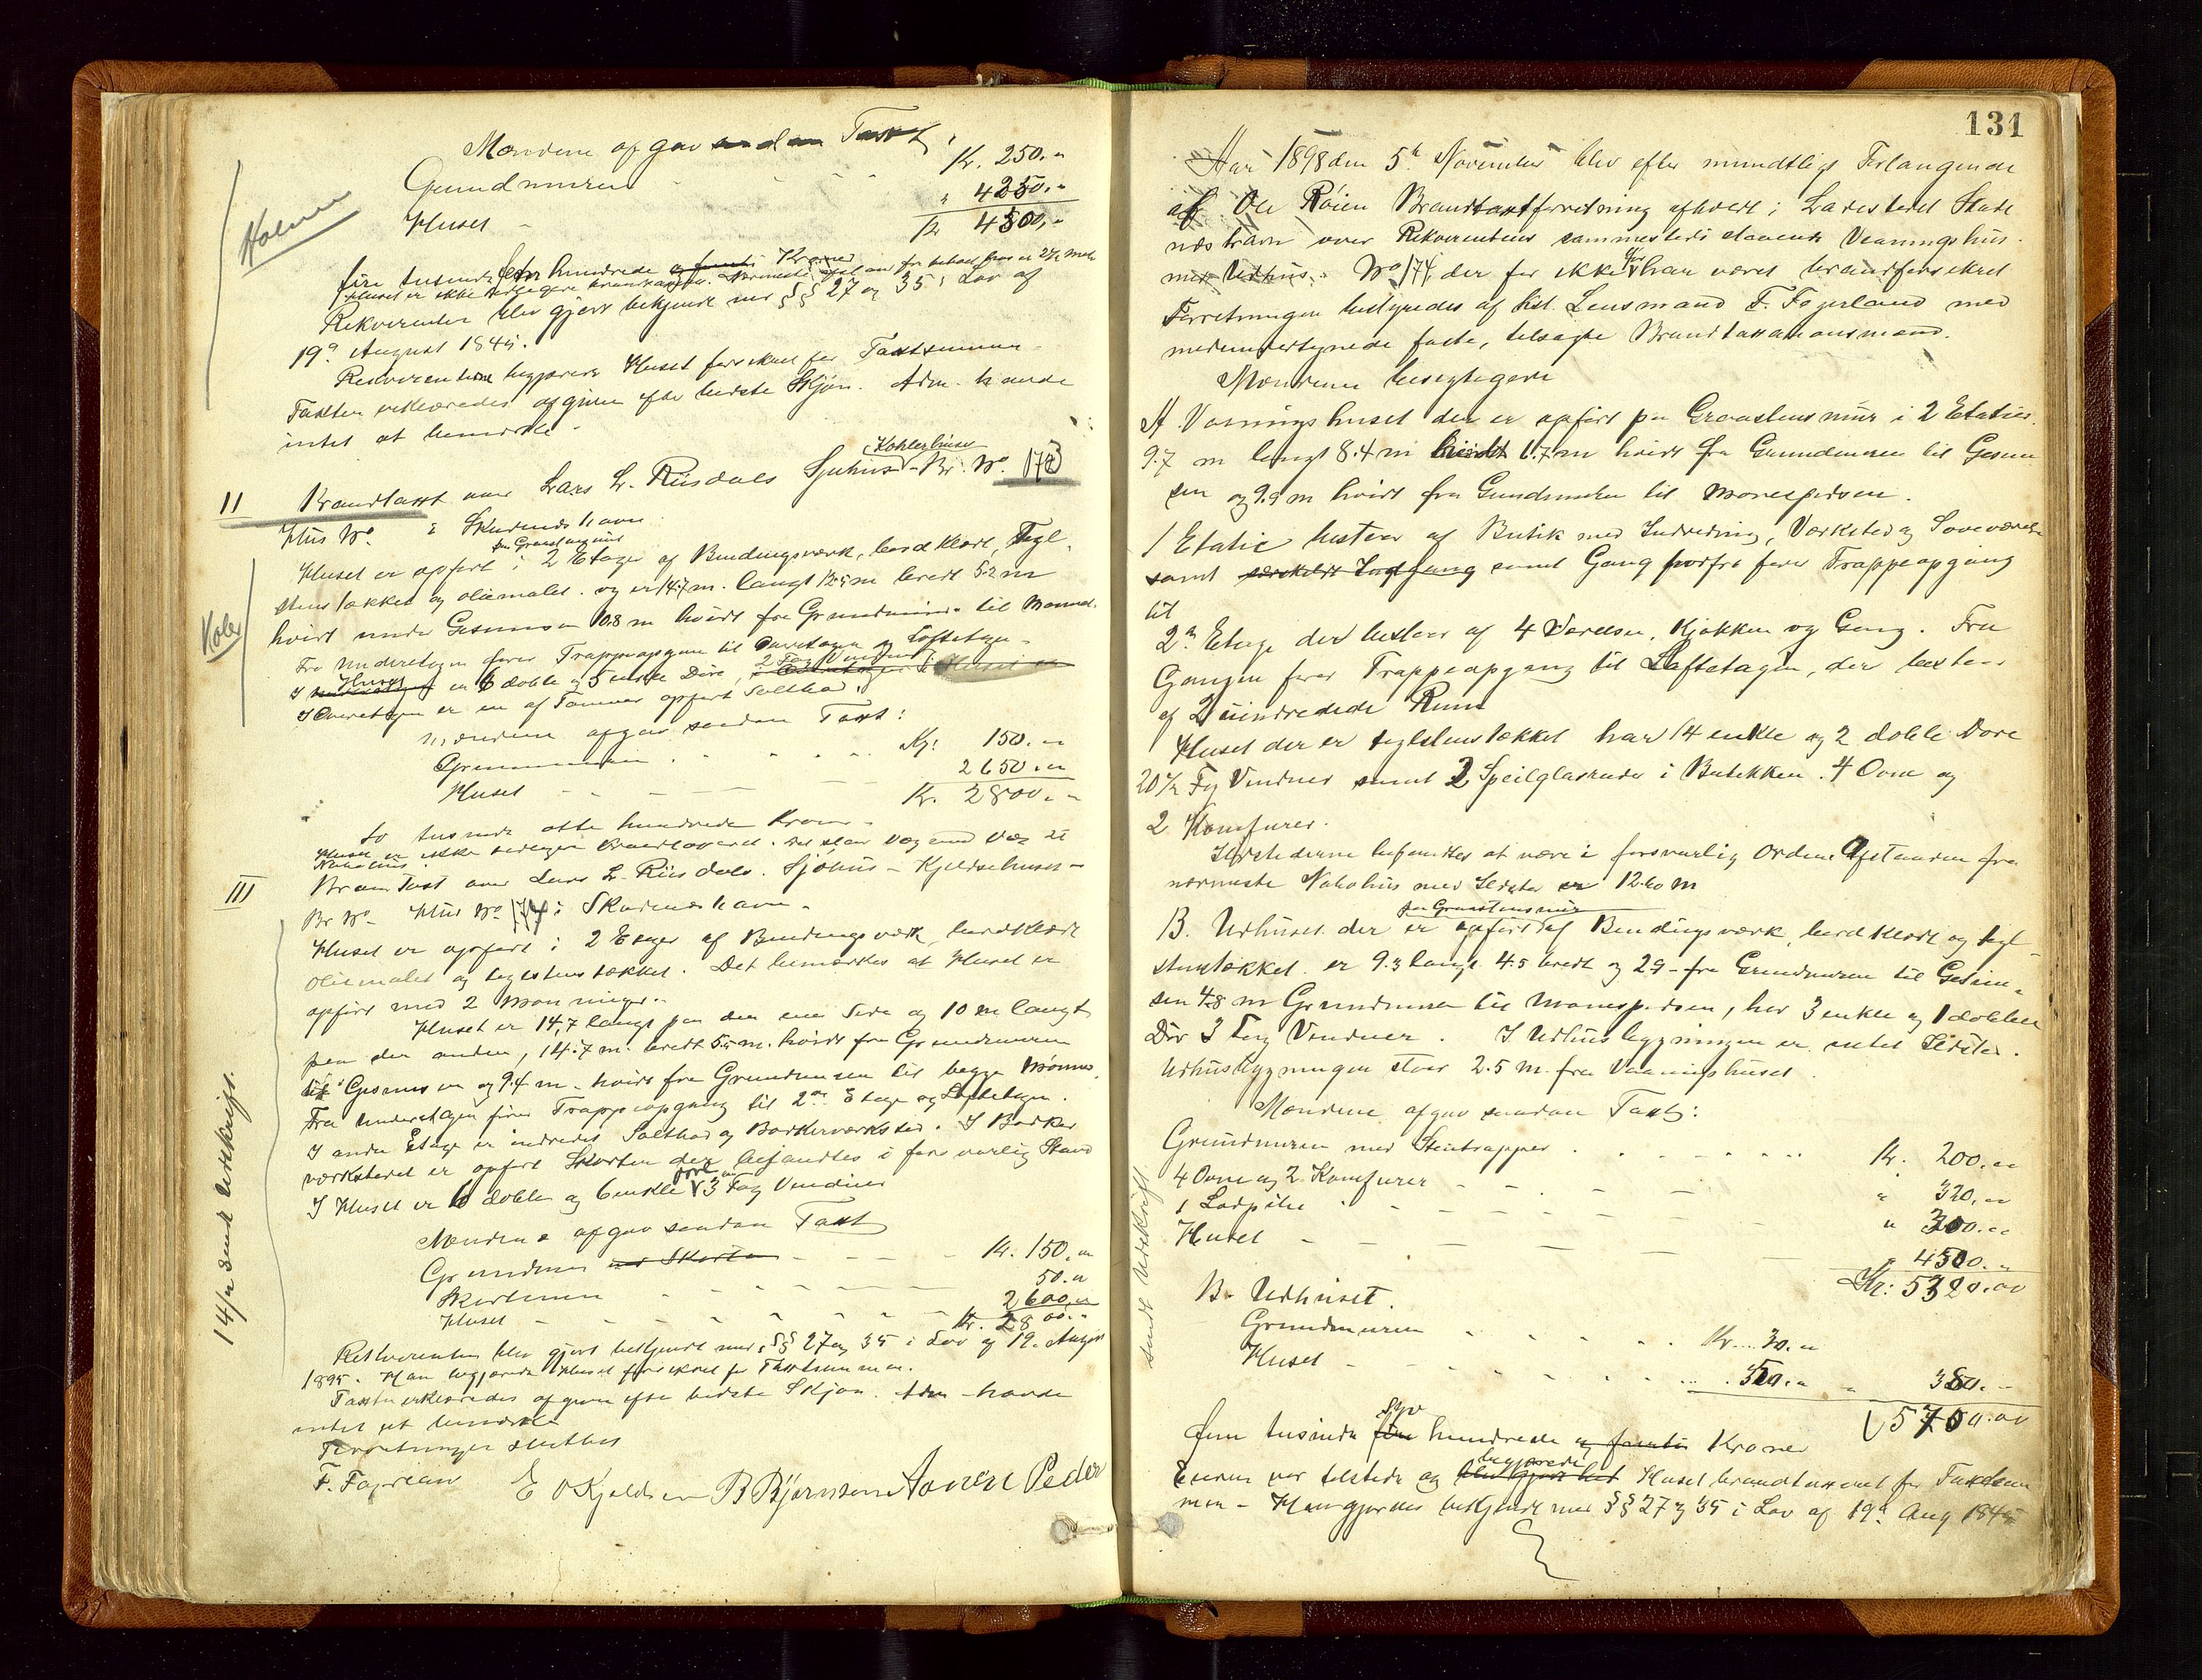 Mændene afgav saadan Taxt,
Grundmuren - - - - Kr. 250.„
Huset - „ 4250.„
Kr 4500,„
Holmen
fire tusinde fem hundrede og femti Kroner
Huset er ikke tidligere brandtaxeret. Nærmeste
Rekvirenten blev gjort bekjendt med §§ 27 og 35 i Lov af
19de August 1845.
Rekvirenten begjærede Huset forsikret for Taxtsummen.
Taxten erklæredes afgiven efter bedste Skjøn. Adm. havde
intet at bemærke.
II Brandtaxt over Lars L. Riisdals Sjøhus - Br. No. 173
Hus No. i Skudenæshavn
paa Graastensmur
Huset er opført i 2 Etager af Bindingsværk, bordklædt, Tegl-
stenstækket og oliemalet. og er 14.7 m. langt 12.5 m bredt 5.2 m
Kolex
høidt under Gesimsen 10.8 m høidt fra Grundmuren til Mønnet.
Fra Underetagen fører Trappeopgang til Overetagen og Loftetagen.
I Huset er 6 doble og 5 enkle Døre, 2 Fag Vinduer
I Overetagen er en af Tømmer opført Saltbod.
Mændene afgav saadan Taxt:
Grundmuren . . . . . Kr: 150.„
Huset - - - - 2650.„
Kr. 2800.„
To tusinde otte hundrede Kroner.
Huset er ikke tidligere brandtaxeret. Det staar Væg mod Væg til
Nabohus.
III Brandtaxt over Lars L. Riisdals. Sjøhus - Kjeldsehuset -
Br No - Hus No 174 i Skudenæshavn.
Huset er opført i 2 Etager af Bindingsværk, bordklædt
oliemalet og teglstenstækket. Det bemærkes at Huset er
opført med 2 Mønninger.
Huset er 14,7 langt paa den ene Side og 10 m langt
paa den anden, 14.7 m. bredt 5.5 m. høidt fra Grundmuren
til Gesimsen og 9.4 m. høidt fra Grundmuren til begge Mønner.
Fra Underetagen fører Trappeopgang til 2den Etage og Loftetagen.
I anden Etage er indredet Saltbod og Bødkerværksted. I Bødker
værkstedet er opført Skorsten der befandtes i forsvarlig Stand
I Huset er 6 doble og 6 enkle Døre 3 Fag Vinduer
14/11 sendt Udskrift.
Mændene afgav saadan Taxt
Grundmur med Skorsten - - - Kr. 150.„
Skorstenen - - - - 50.„
Huset - - - - 2600.„
Kr. 2800.„
Rekvirenten blev gjort bekjendt med §§ 27 og 35 i Lov af 19. August
1845. Han begjærede Huset forsikret for Taxtsummen.
Taxten erklæredes afgiven efter bedste Skjøn. Adm. havde
intet at bemærke
Forretningen sluttet
F. Fajerland E O Kjeldsen B Bjørnsen Aanen Peder
131
Aar 1898 den 5te November blev efter mundtligt Forlangende
af Ole Røien Brandtaxtforretning afholdt i Ladestedet Skude
næshavn over Rekvirentens sammesteds staaende Vaaningshus
med Udhus. No 174, der før ikke har været brandforsikret
Forretningen bestyredes af kst. Lensmand F. Fajerland med
medundertegnede faste, tilsagte Brandtaxationsmænd.
Mændene besigtigede
A Vaaningshuset der er opført paa Graastensmur i 2 Etager
9.7 m langt 8.4 m bredt 6.7 m høidt fra Grundmuren til Gesim
sen og 9.9 m høidt fra Grundmuren til Mønespidsen.
1 Etage bestaar af Butik med Indredning, Værksted og Soveværelse
samt særskildt Indgang samt Gang hvorfra fører Trappeopgang
til
2den Etage der bestaar af 4 Værelser, Kjøkken og Gang. Fra
Gangen fører Trappeopgang til Loftetagen, der bestaar
af 2 uindredede Rum
Huset der er teglstenstækket har 14 enkle og 2 doble Døre
20 1/2 Fag Vinduer samt 2 Speilglasruder i Butikken. 4 Ovne og
2 Komfurer.
Ildstederne befandtes at være i forsvarlig Orden. Afstanden fra
nærmeste Nabohus med Ildsted er 12.60 m
paa Graastensmur
B. Udhuset der er opført af Bindingsværk, bordklædt og tegl
stenstækket. er 9.3 langt 4.5 bredt og 2.9 - fra Grundmuren til Gesim-
sen 4.8 m Grundmuren til Mønespidsen, har 3 enkle og 1 dobbel
Dør 3 Fag Vinduer. I Udhusbygningen er intet Ildsted.
Udhusbygningen staar 2.5 m. fra Vaaningshuset.
Mændene afgav saadan Taxt:
Grundmuren med Stentrapper . . . . Kr. 200.„
4 Ovne og 2 Komfurer - - - „ 320.„
1 Ladpibe - - - - „ 300.„
Huset - - - - „ 4500.„
Kr: 5320.00
B. Udhuset.
Grundmuren . . . . Kr. 30.„
Huset - . . . . 350.„ „ 380.„
5700.00
sendt Udskrift
fem tusinde syv hundrede og femti Kroner
Eieren var tilstede og begjærede Huset brandtaxeret for Taxtsum
men - Han gjordes bekjendt med §§ 27 og 35 i Lov af 19de Aug 1845